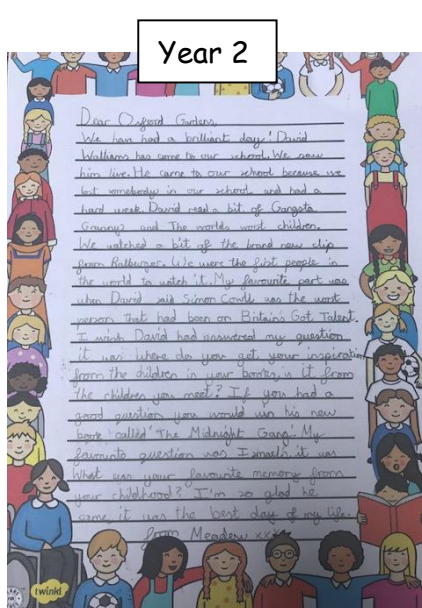 Year 2
Dear Oxford Gardens,
We have had a brilliant day! David
Walliams has come to our school. We saw
him live. He came to our school because we
lost somebody in our school and had a
hard week. David read a bit of Gangsta
Granny and The worlds worst children.
We watched a bit of the brand new clip
from Ratburger. We were the first people in
the world to watch it. My favourite part was
when David said Simon Cowell was the worst
person that had been on Britain's Got Talent.
I wish David had answered my question
it was Where do you get your inspiration
from the children in your books, is it from
the children you meet? If you had a
good question you would win his new
book called 'The Midnight Gang'. My
favourite question was it was
What was your favourite memory from
your childhood? I'm so glad he
came, it was the best day of my life.
from xxx
twinkl